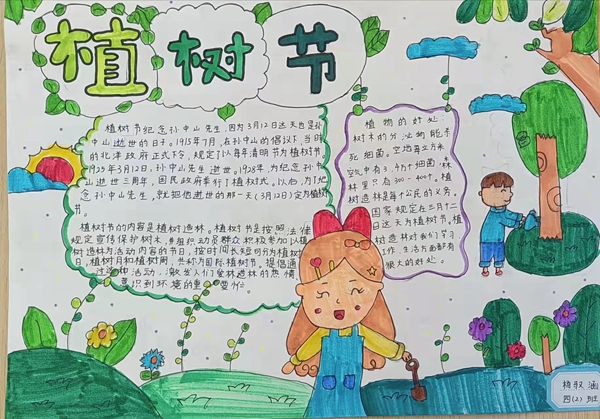 植树节
植树节纪念孙中山先生,因为3月12日这天也是孙
中山逝世的日子。1915年7月,在孙中山的倡议下,当时
的北洋政府正式下令,规定了以每年清明节为植树节
1925年3月12日,孙中山先生逝世。1928年,为纪念孙中
山逝世三周年,国民政府举行了植树式。以后,为了纪
念孙中山先生,就把他逝世的那一天(3月12日)定为植树
节。
植树节的内容是植树造林。植树节是按照法律
规定宣传保护树木,并组织动员群众积极参加以植
树造林为活动内容的节日,按时间长短可分为植树
日,植树月和植树周,共称为国际植树节,提倡通
过这种活动,激发人们爱林造林的热情
意识到环境的重要性
植物的好处
树木的分泌物能杀
死细菌。空地每立方米
空气中有3~4万个细菌,森
林里只有300~400个。植
树造林是每个公民的义务。
国家规定在三月十二
日这天为植树节。植
树造林对我们学习
工作,生活方面都有
很大的好处。
四(2)班